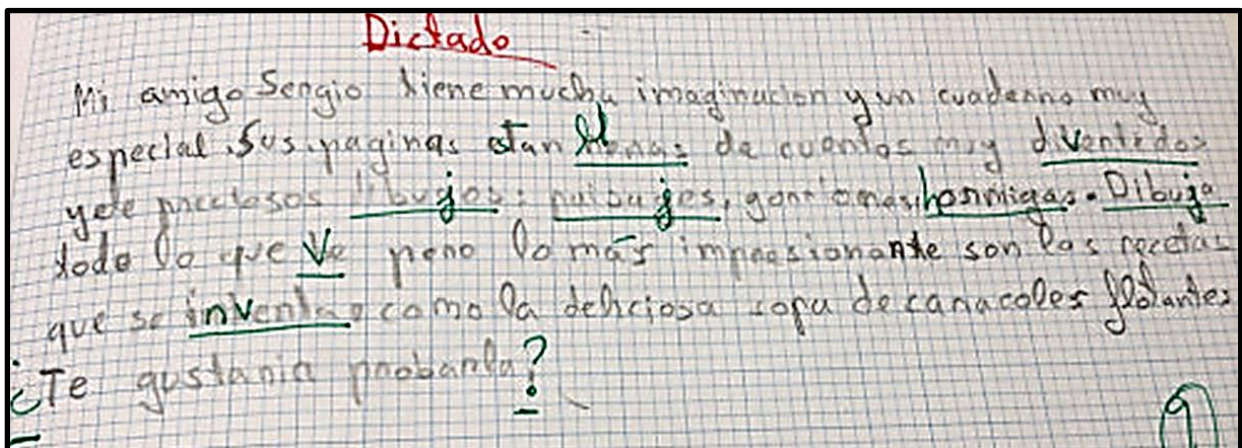 Dictado
Mi amigo Sergio tiene mucha imaginacion y un cuaderno muy
especial. Sus paginas estan llenas de cuentos muy diventidos
y de preciosos dibujos: paisajes, gorriones, hormigas. Dibuja
todo lo que ve pero lo más impresionante son las recetas
que se inventa, como la deliciosa sopa de caracoles flotantes
¿Te gustaria probarla?
9